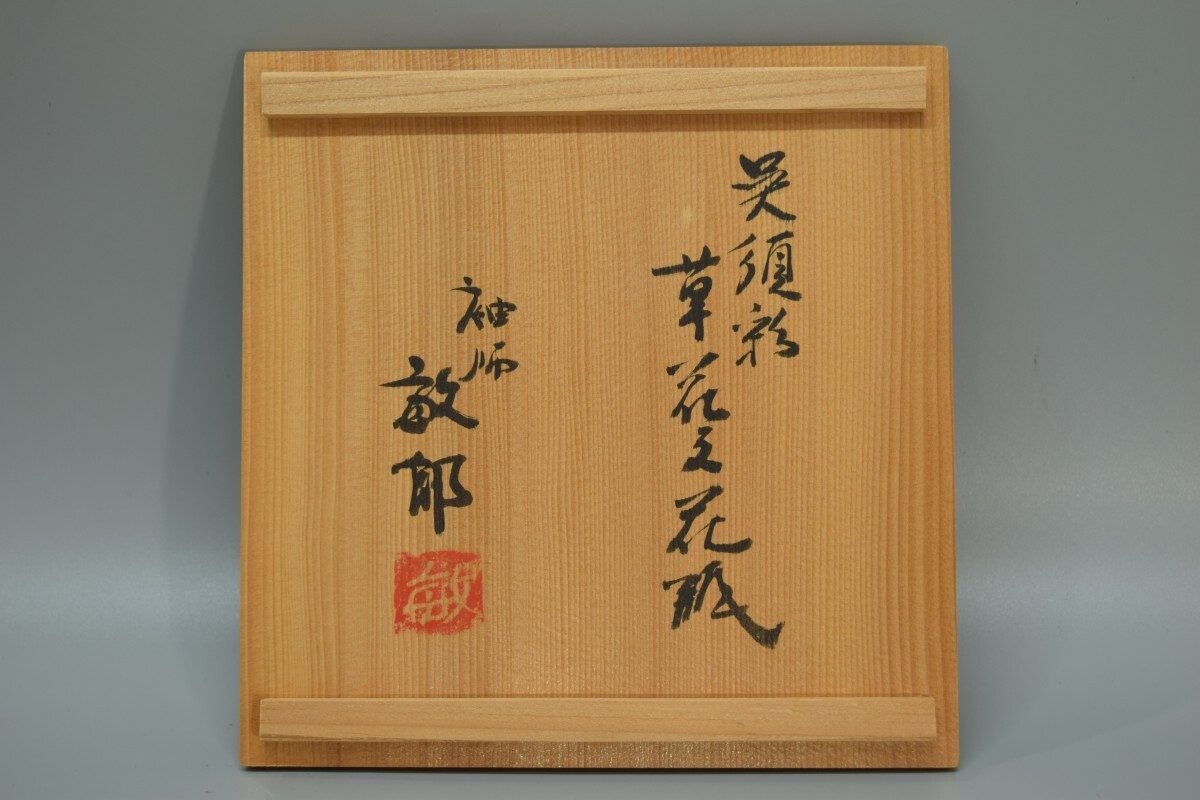 呉須彩
草花文花瓶
袖師
敏郎
敏